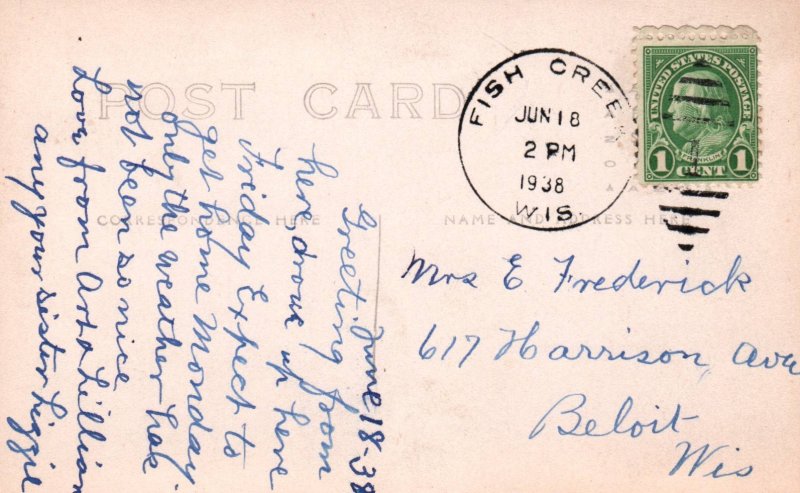 POST CARD
FISH CREEK
JUN 18
2 PM
1938
WIS
UNITED STATES POSTAGE
FRANKLIN
1 CENT 1
CORRESPONDENCE HERE
NAME AND ADDRESS HERE
June 18-38
Greeting from
here, drove up here
Friday Expect to
get home Monday
only the weather has
not been so nice
Love from Art & Lillian
any your sister Lizzie
Mrs E Frederick
617 Harrison, Ave
Beloit
Wis